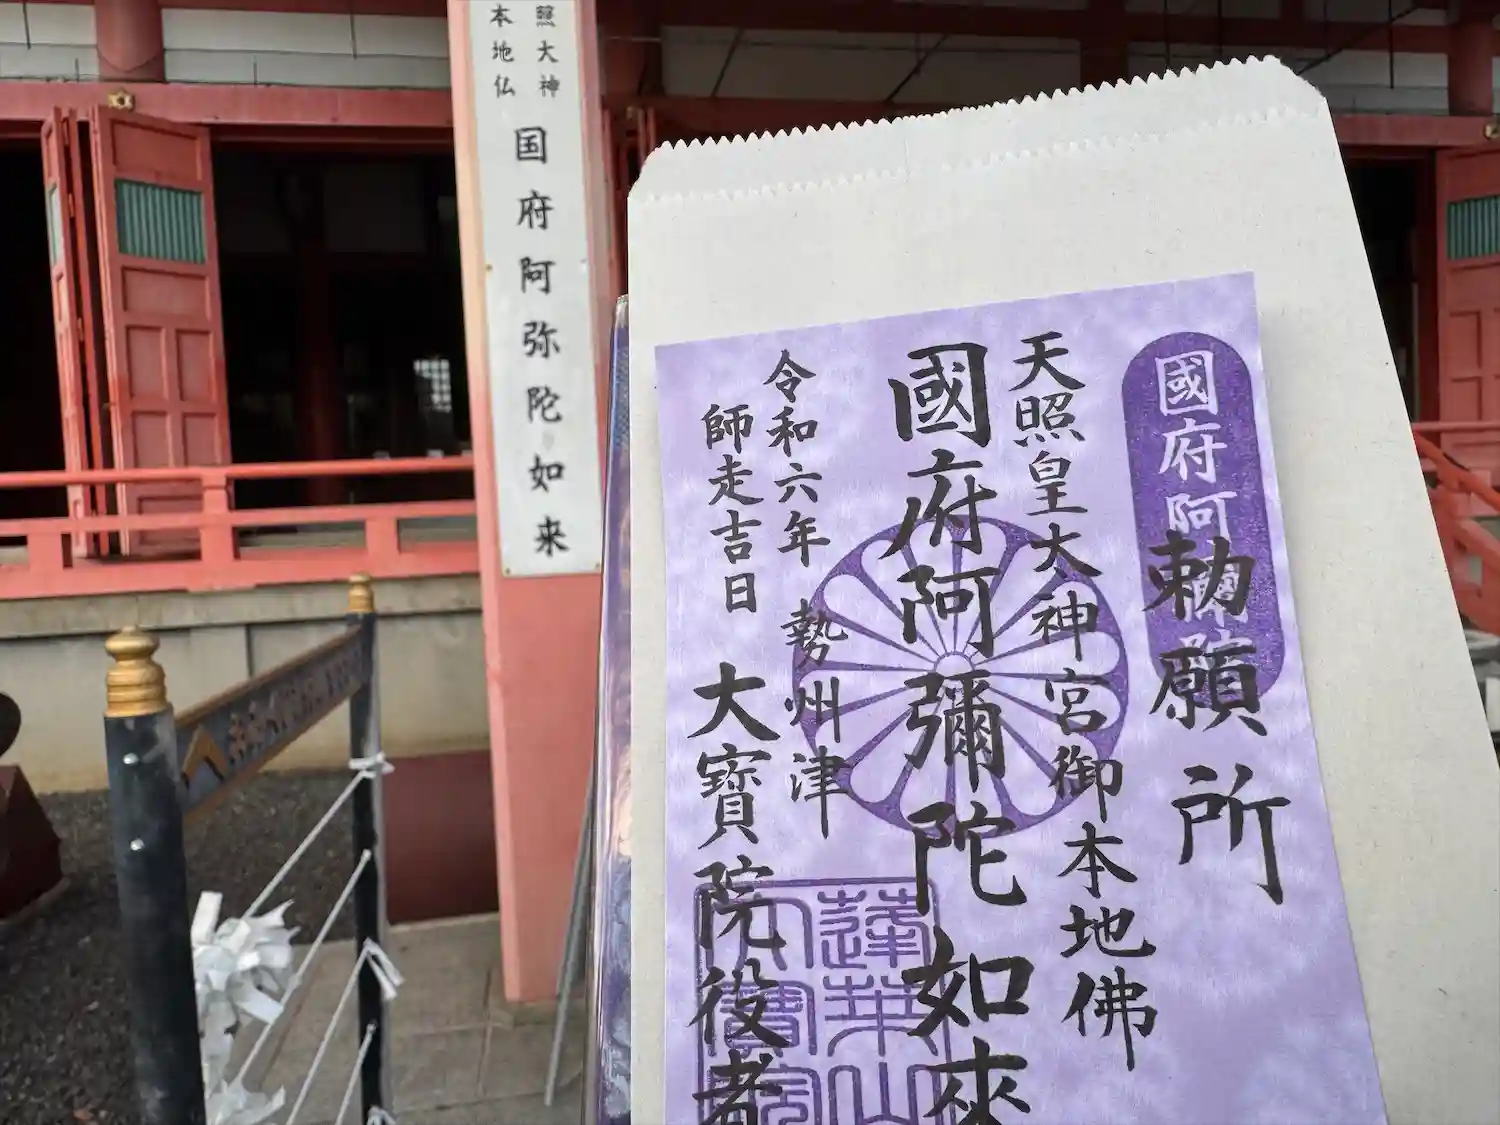 照大神
本地仏
国府阿弥陀如来
國府阿彌陀
勅願所
天照皇大神宮御本地佛
國府阿彌陀如來
令和六年 勢州津
師走吉日 大寶院役者
蓮華山
大寶院